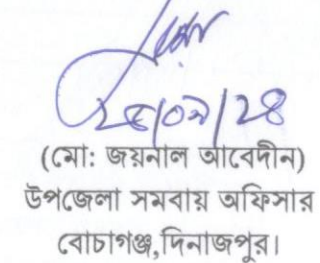 (মো: জয়নাল আবেদীন)
উপজেলা সমবায় অফিসার
বোচাগঞ্জ,দিনাজপুর।